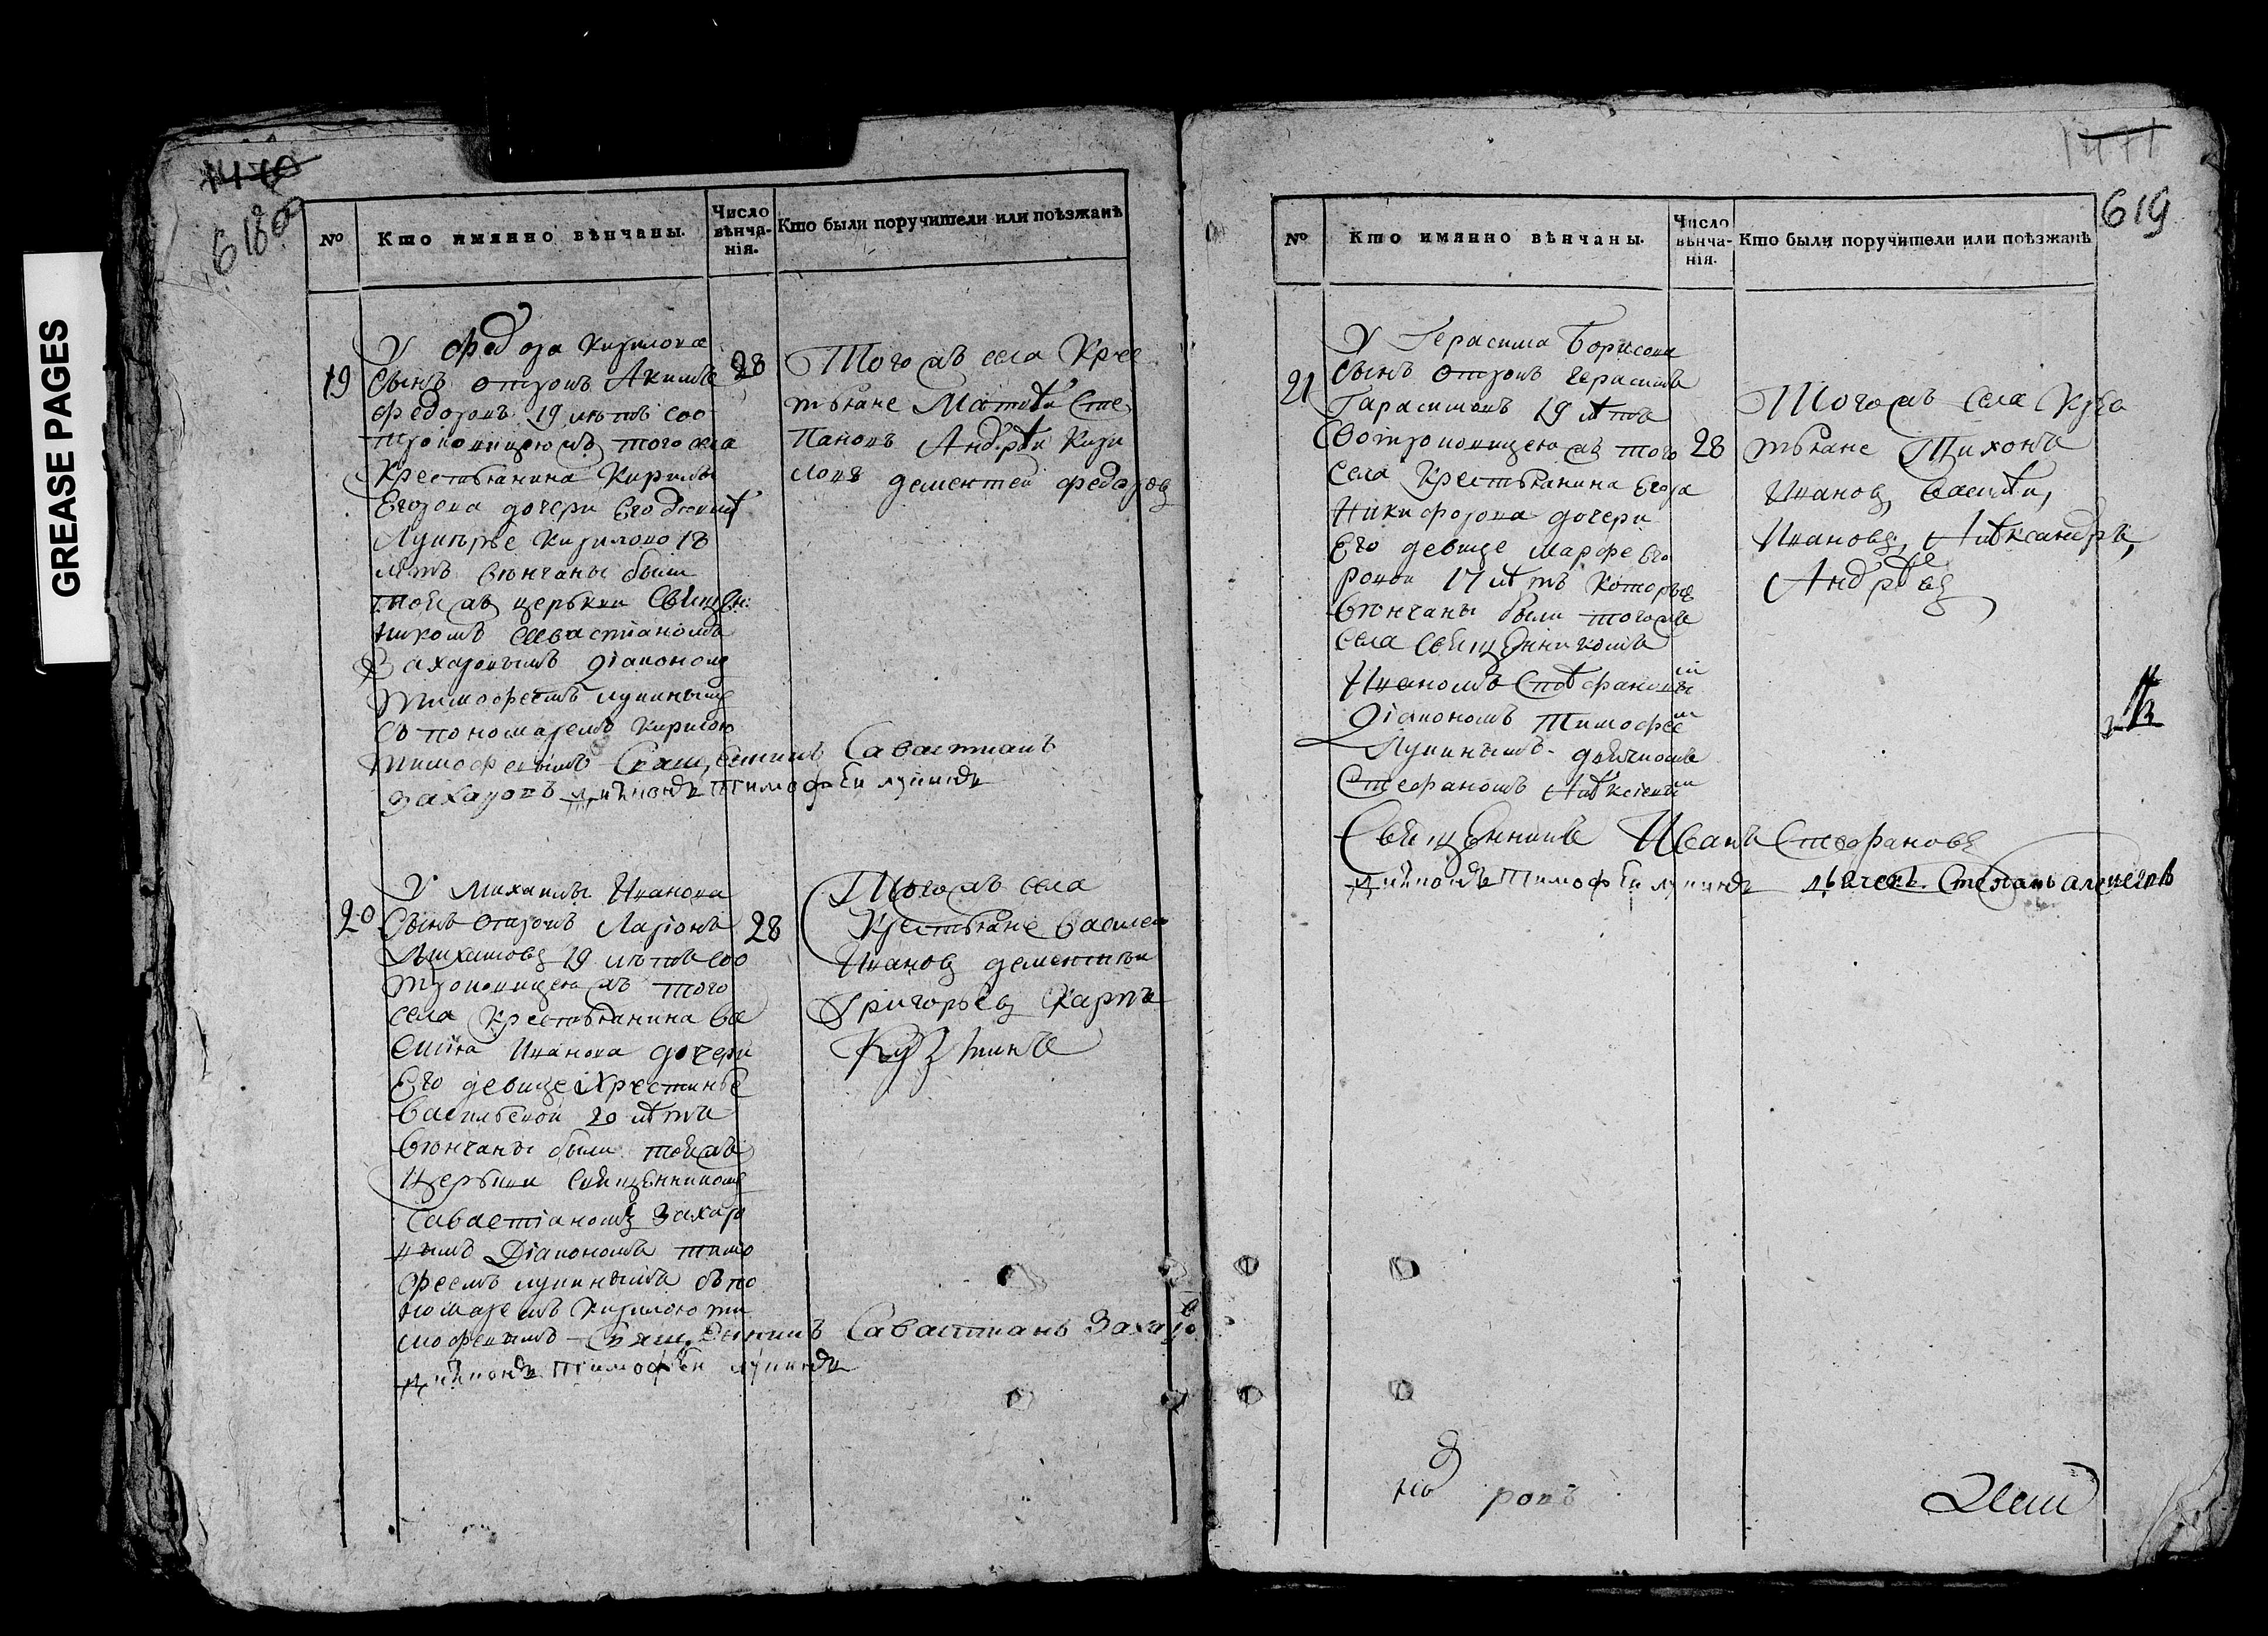 GREASE PAGES
618об
№
Кто имянно вѣнчаны.
Число вѣнча-нія.
Кто были поручители или поѣзжанѣ
19
У Федора Кирилова
сынъ отрокъ Акимъ
Федоровъ 19 лѣтъ соо
троковицею жъ того села
крестьянина Кирилы
Егорова дочери его девице
Лукерье Кириловой 18
лѣтъ венчаны были
той жъ церькви священ
никомъ Севастианомъ
Захаровымъ діакономъ
Тимофеемъ Лукинымъ
съ пономаремъ Кирилою
Тимофеевымъ Священникъ Савастианъ
Захаровъ диаконъ Тимофей Лукинъ
28
Того жъ села крес
тьяне Матвей Сте
пановъ Андрей Кири
ловъ Дементей Федоров
20
У Михайлы Иванова
сынъ отрокъ Ларионъ
Михайлов 19 лѣтъ соо
троковицею жъ того
села крестьянина Ва
силия Иванова дочери
его девице Хрестинье
Васильевой 20 лѣтъ
венчаны были той жъ
церькви священникомъ
Савастіаномъ Захаро
вымъ Діакономъ Тимо
феемъ Лукинымъ съ по
номаремъ Кирилою Ти
мофеевымъ Священникъ Савастианъ Захаров
диаконъ Тимофей Лукинъ
28
Того жъ села
крестьяне Василей
Иванов Дементей
Григорьев Карпъ
Кузминъ
1471
619
№
Кто имянно вѣнчаны.
Число вѣнча-нія.
Кто были поручители или поѣзжанѣ
21
У Герасима Борисова
сынъ отрокъ Герасимъ
Гарасимовъ 19 лѣтъ
соотроковицею жъ того
села крестьянина Егора
Никифорова дочери
его девице Марфе Его
ровой 17 лѣтъ которые
венчаны были того жъ
села священникомъ
Иваномъ Стефановым
Діакономъ Тимофеем
Лукинымъ дьячкомъ
Стефаномъ Алексеевым
Священникъ Иванъ Стефановъ
диаконъ Тимофей Лукинъ дьячекъ Степанъ Алексеевъ
28
Того жъ села крес
тьяне Тихонъ
Иванов, Василей,
Иванов, Александръ,
Андреев
ровъ